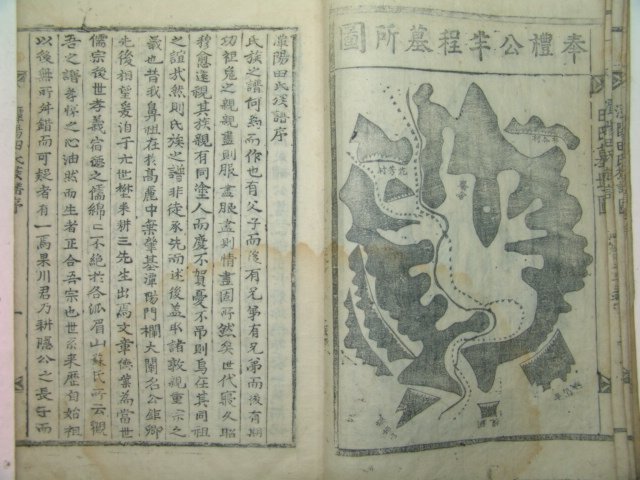 奉禮公半程墓所圖
潭陽田氏族譜序
氏族之譜何爲而作也有父子而後有兄弟有兄弟而後有期
功袒免之親親盡則服盡服盡則情盡固所然矣世代寢久昭
穆愈遠視其族親有同塗人而慶不賀憂不吊則烏在其同祖
之誼哉然則氏族之譜非徒承先而述後盖承諸敦親重宗之
義也昔我鼻祖在於高麗中葉肇基潭陽門欄大闡名公鉅卿
先後相望爰泊于六世埜耒耕三先生出焉文章德業爲當世
儒宗後世孝義宿德之儒綿〻不絶於各派眉山蘇氏所云觀
吾之譜孝悌之心油然而生者正合吾宗也世系來歷自始祖
以後無所舛錯而可疑者有一焉果川君乃耕隱公之長子而
潭陽田氏族譜序